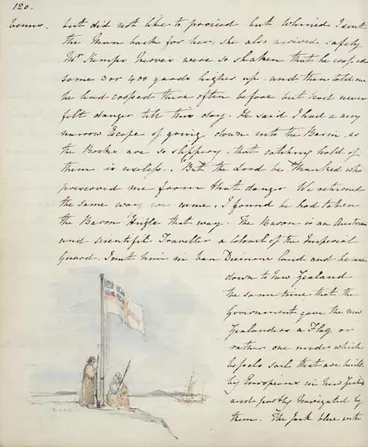 120.
but did not like to proceed but when I sent
the Man back for her, she also arrived safely.
Mr Kemps Nerves were so shaken that he crossed
some 3 or 400 yards higher up and then told me
he had crossed there often before but had never
felt danger till this day. He said I had a very
narrow Escape of going down into the Basin, as
the Rocks are so slippery, that catching hold of
them is useless. But the Lord be thanked who
preserved me from that danger We returned
the same way we came. I found he had taken
the Baron Hugle that way. The Baron is an Austrian
and scientific Traveller a Colonel of the Imperial
Guard. I met him in Van Diemans Land and he came
down to New Zealand
the same time that the
Government gave the New
Zealanders a Flag or
rather one under which
Vessels sail that are built
by Europeans in New Zealand
and partly navigated by
them. The Jack blue with